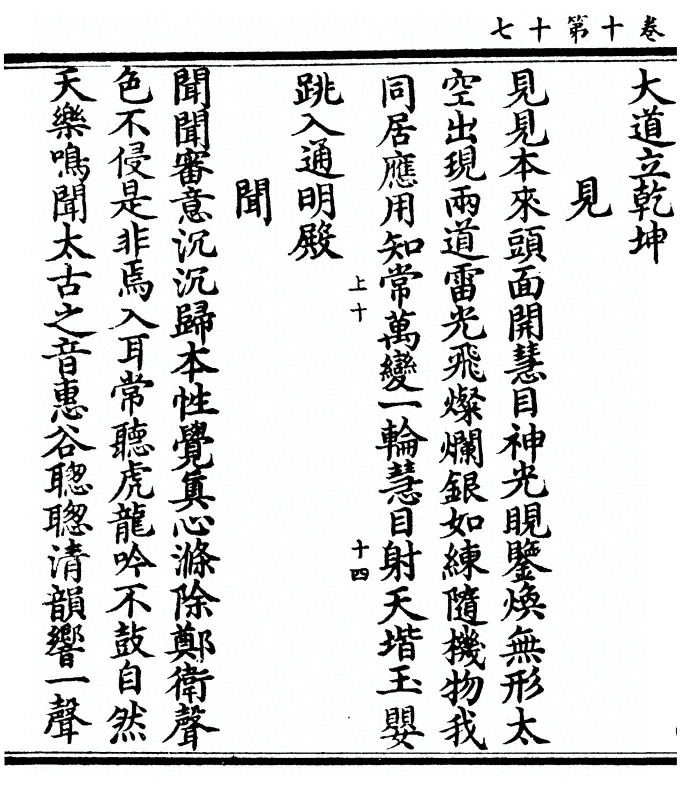 卷十第十七
大道立乾坤
見
見見本來頭面開慧目神光睍鑒煥無形太
空出現兩道雷光飛燦爛銀如練隨機物我
同居應用知常萬變一輪慧目射天堦玉嬰
上十
十四
跳入通明殿
聞
聞聞審意沉沉歸本性覺眞心滌除鄭衛聲
色不侵是非焉入耳常聽虎龍吟不鼓自然
天樂鳴聞太古之音惠谷聰聰清韻響一聲